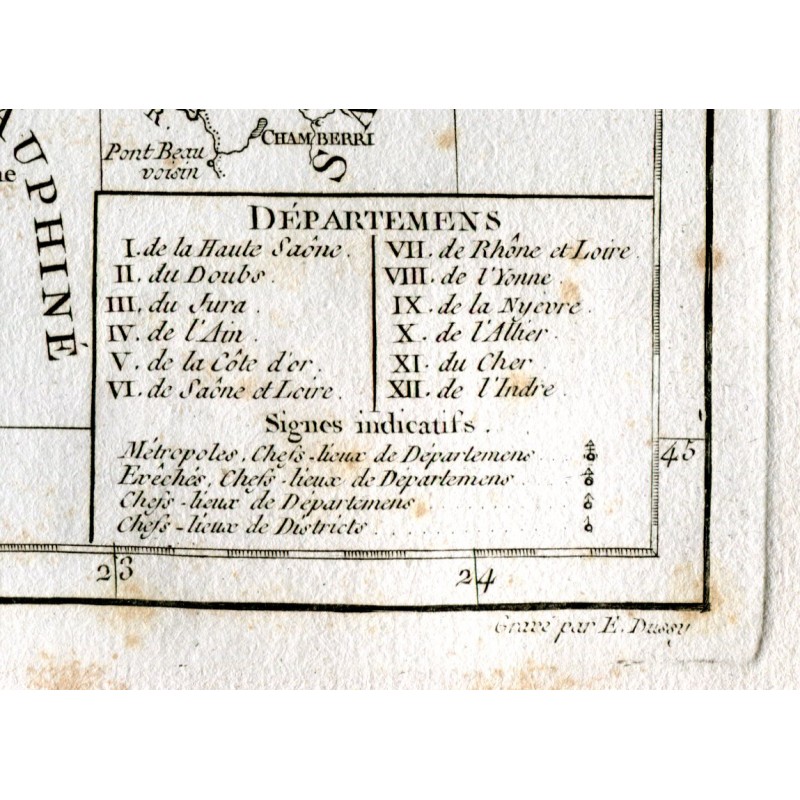 AUPHINÉ
R.
CHAMBERRI
S
Pont Beau
voisin
DÉPARTEMENS
I. de la Haute Saône.
II. du Doubs.
III. du Jura.
IV. de l'Ain.
V. de la Côte d'or.
VI. de Saône et Loire.
VII. de Rhône et Loire.
VIII. de l'Yonne.
IX. de la Nyevre.
X. de l'Allier.
XI. du Cher
XII. de l'Indre.
Signes indicatifs.
Métropoles, Chefs-lieux de Départemens
Evêchés, Chefs-lieux de Départemens
Chefs-lieux de Départemens
Chefs-lieux de Districts
45
23
24
Gravé par E. Dussy